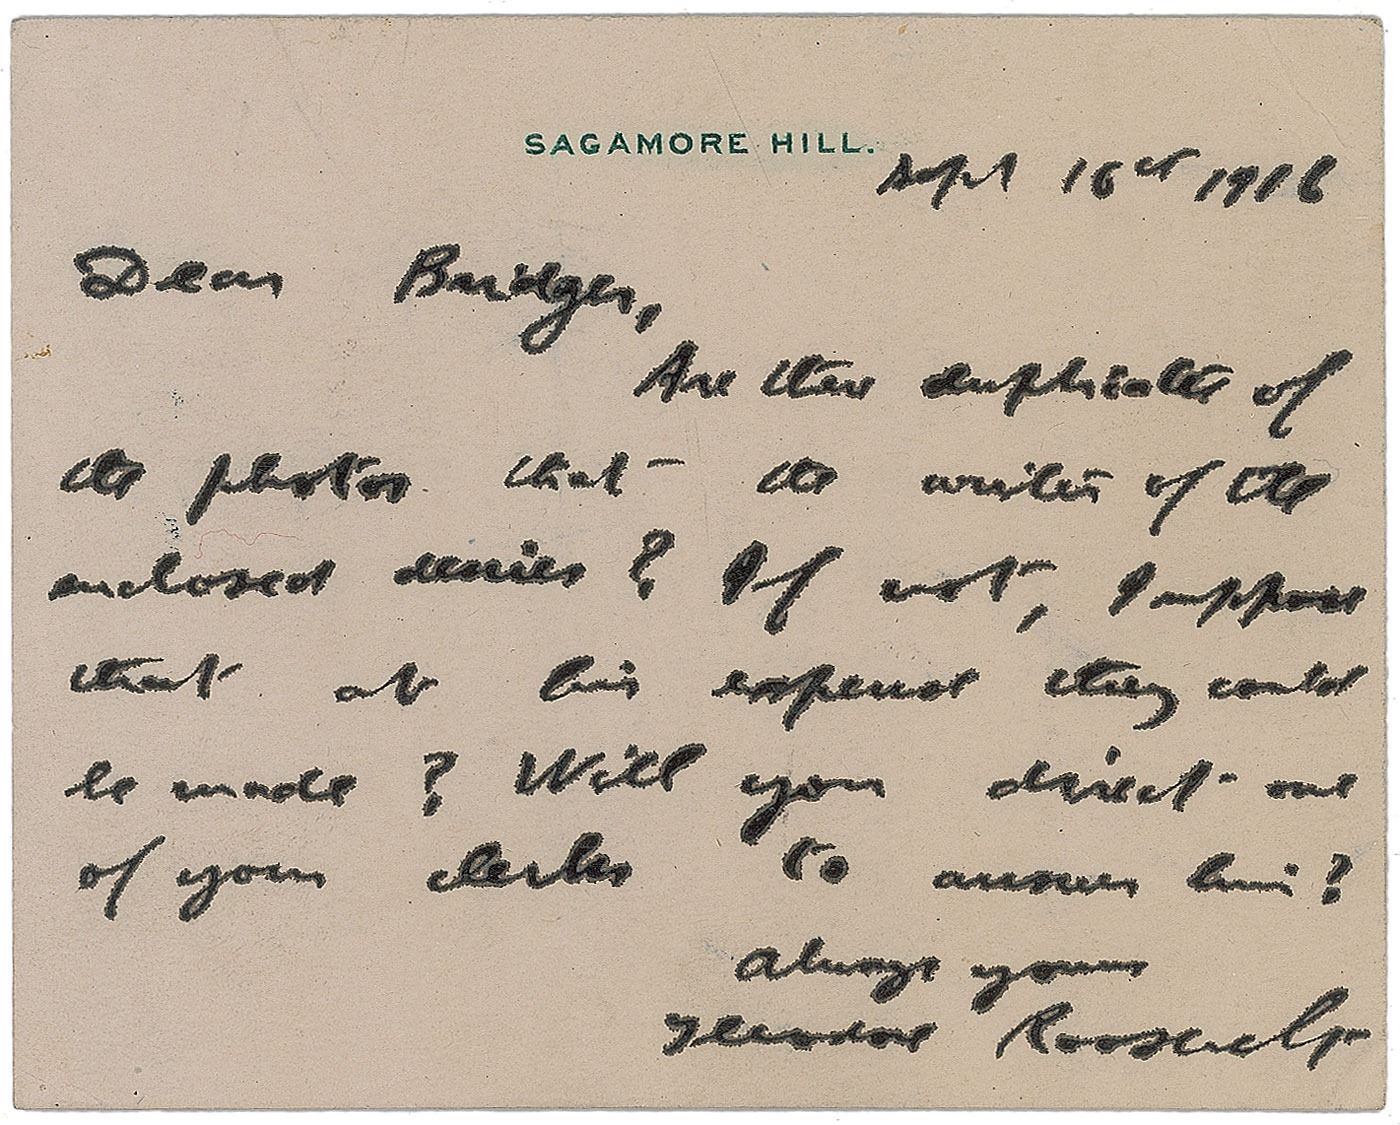 SAGAMORE HILL.
Sept 16th 1916
Dear Bridges,
Are there duplicates of
the photos that the writer of the
enclosed desires? If not, I suppose
that at his expense they could
be made? Will you direct one
of your clerks to answer him?
Always yours
Theodore Roosevelt